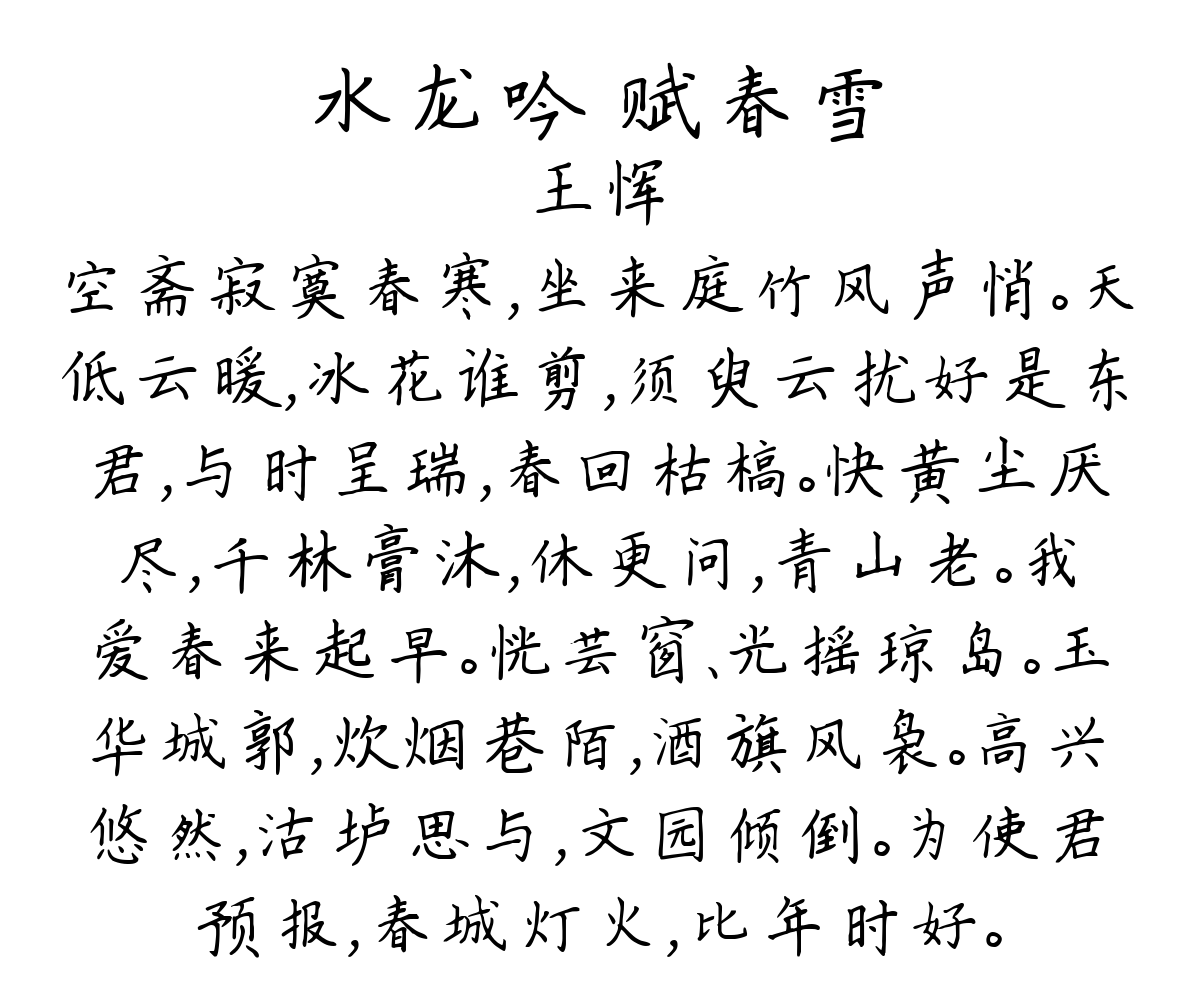 水龙吟 赋春雪
王恽
空斋寂寞春寒,坐来庭竹风声悄。天
低云暖,冰花谁剪,须臾云扰好是东
君,与时呈瑞,春回枯槁。快黄尘厌
尽,千林膏沐,休更问,青山老。我
爱春来起早。恍芸窗、光摇琼岛。玉
华城郭,炊烟巷陌,酒旗风袅。高兴
悠然,沽垆思与,文园倾倒。为使君
预报,春城灯火,比年时好。